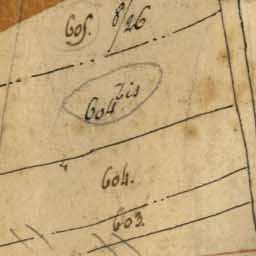 605. 8/26
604 bis
604.
603.